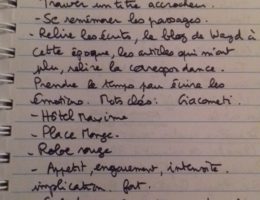 - Trouver un titre accrocheur.
- Se remémorer les passages.
- Relire les écrits, le blog de Wayd à
cette époque, les articles qui m'ont
plu, relire la correspondance.
Prendre le temps pour écrire les
émotions. Mots clés: Giacometi.
- Hôtel Maxime
- Place Monge.
- Robe rouge
- Appétit, engouement, intensité.
implication. fort.